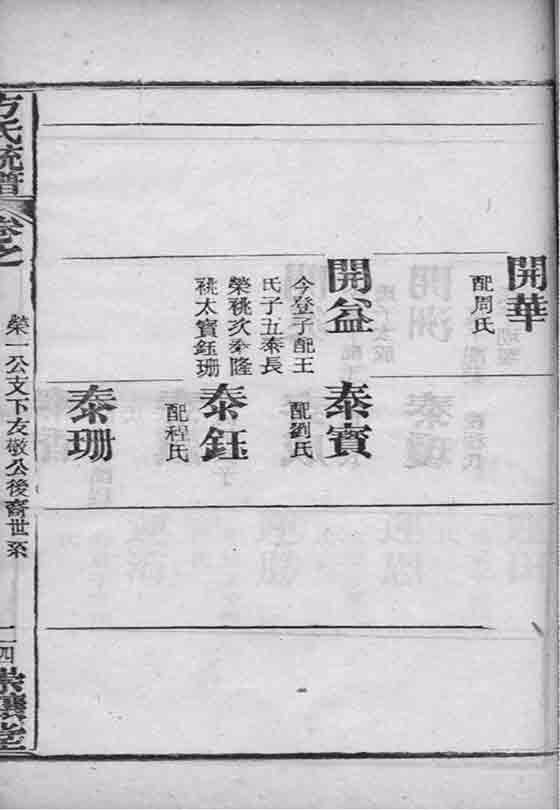 開華
配周氏
開益
今登子配王
氏子五泰長
榮祧次泰隆
祧太寳鈺珊
泰寳
配劉氏
泰鈺
配程氏
泰珊
方氏統譜
卷之
榮一公支下友敬公後裔世系
一四
崇讓堂